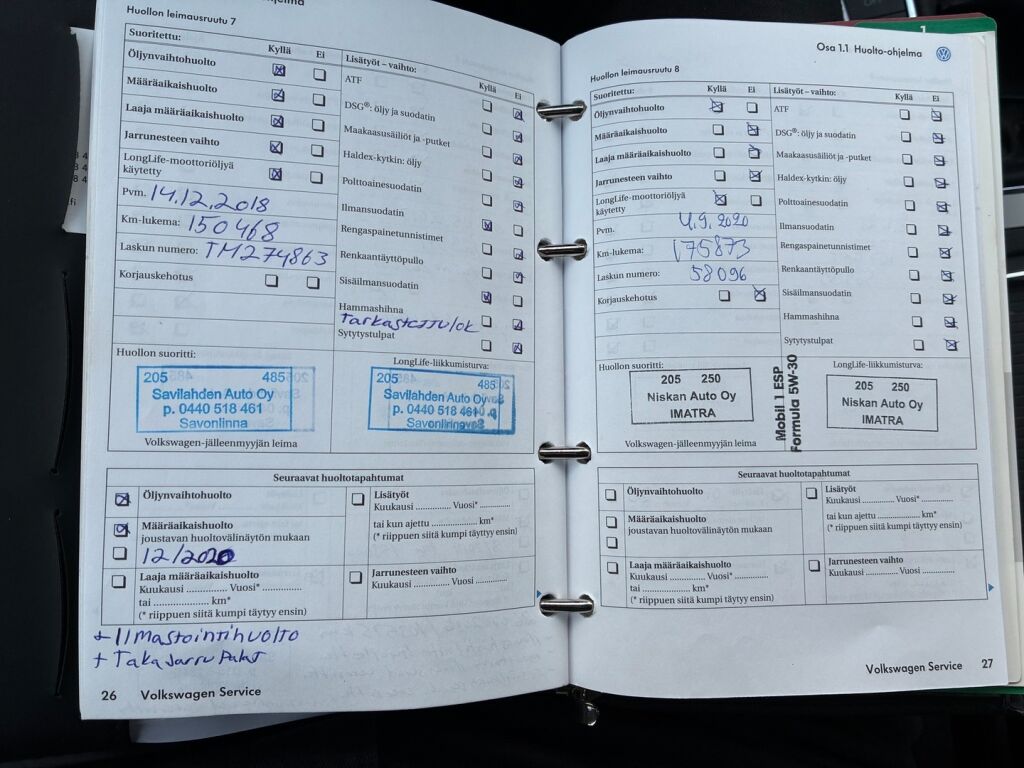 Huollon leimausruutu 7
Suoritettu:
Kyllä Ei
Öljynvaihtohuolto
Määräaikaishuolto
Laaja määräaikaishuolto
Jarrunesteen vaihto
LongLife-moottoriöljyä
käytetty
Pvm. 14.12.2018
Km-lukema: 150468
Laskun numero: TM274863
Korjauskehotus
Lisätyöt – vaihto:
Kyllä Ei
ATF
DSG®: öljy ja suodatin
Maakaasusäiliöt ja -putket
Haldex-kytkin: öljy
Polttoainesuodatin
Ilmansuodatin
Rengaspainetunnistimet
Renkaantäyttöpullo
Sisäilmansuodatin
Hammashihna
Tarkastettu/ok
Sytytystulpat
Huollon suoritti:
205 485
Savilahden Auto Oy
p. 0440 518 461
Savonlinna
Volkswagen-jälleenmyyjän leima
LongLife-liikkumisturva:
205 485
Savilahden Auto Oy
p. 0440 518 461
Savonlinna
Seuraavat huoltotapahtumat
Öljynvaihtohuolto
Määräaikaishuolto
joustavan huoltovälinäytön mukaan
12/2020
Laaja määräaikaishuolto
Kuukausi ............. Vuosi* ..............
tai .................... km*
(* riippuen siitä kumpi täytyy ensin)
Lisätyöt
Kuukausi ............. Vuosi* ............
tai kun ajettu ................. km*
(* riippuen siitä kumpi täytyy ensin)
Jarrunesteen vaihto
Kuukausi ............. Vuosi ............
+ Ilmastointihuolto
+ Takajarru Palat
26 Volkswagen Service
Osa 1.1 Huolto-ohjelma
Huollon leimausruutu 8
Suoritettu:
Kyllä Ei
Öljynvaihtohuolto
Määräaikaishuolto
Laaja määräaikaishuolto
Jarrunesteen vaihto
LongLife-moottoriöljyä
käytetty
Pvm. 4.9.2020
Km-lukema: 175873
Laskun numero: 58096
Korjauskehotus
Lisätyöt – vaihto:
Kyllä Ei
ATF
DSG®: öljy ja suodatin
Maakaasusäiliöt ja -putket
Haldex-kytkin: öljy
Polttoainesuodatin
Ilmansuodatin
Rengaspainetunnistimet
Renkaantäyttöpullo
Sisäilmansuodatin
Hammashihna
Sytytystulpat
Huollon suoritti:
205 250
Niskan Auto Oy
IMATRA
Volkswagen-jälleenmyyjän leima
Mobil 1 ESP
Formula 5W-30
LongLife-liikkumisturva:
205 250
Niskan Auto Oy
IMATRA
Seuraavat huoltotapahtumat
Öljynvaihtohuolto
Määräaikaishuolto
joustavan huoltovälinäytön mukaan
Laaja määräaikaishuolto
Kuukausi ............. Vuosi* ..............
tai .................... km*
(* riippuen siitä kumpi täytyy ensin)
Lisätyöt
Kuukausi ............. Vuosi* ............
tai kun ajettu ................. km*
(* riippuen siitä kumpi täytyy ensin)
Jarrunesteen vaihto
Kuukausi ............. Vuosi ............
Volkswagen Service 27